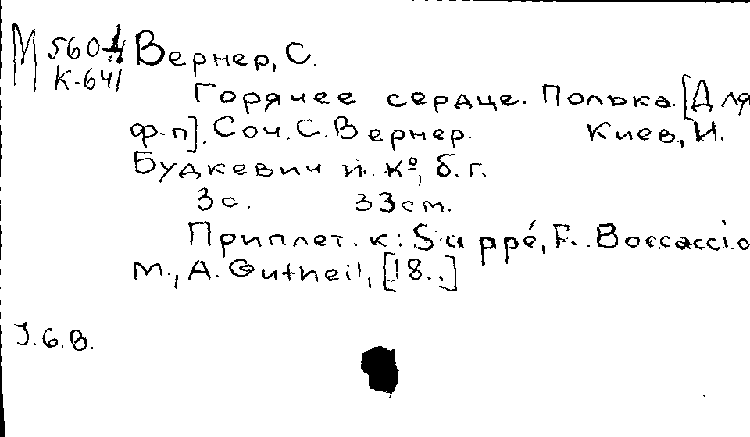 М 560-4 Вернер, С.
К-641
Горячее сердце. Полька. [Для
ф-п]. Соч. С. Вернер. Киев, И.
Будкевич и Кº, б. г.
3 с. 33 см.
Приплет. к: Suppé, F. Boccaccio
М., A. Gutheil, [18..]
J. 6. В.